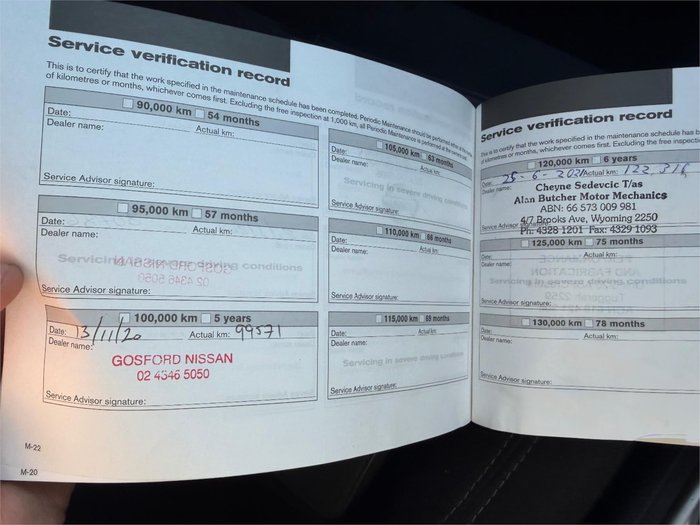 Service verification record
This is to certify that the work specified in the maintenance schedule has been completed. Periodic Maintenance should be performed either at the
of kilometres or months, whichever comes first. Excluding the free inspection at 1,000 km, all Periodic Maintenance is performed at the
90,000 km 54 months
Date: Actual km:
Dealer name:
Service Advisor signature:
95,000 km 57 months
Date: Actual km:
Dealer name:
Servicing in severe driving conditions
GOSFORD NISSAN
02 4346 5050
Service Advisor signature:
100,000 km 5 years
Date: 13/11/20 Actual km: 99571
Dealer name:
GOSFORD NISSAN
02 4346 5050
Service Advisor signature:
M-22
M-20
105,000 km 63 months
Date: Actual km:
Dealer name:
Servicing in severe driving conditions
Service Advisor signature:
110,000 km 66 months
Date: Actual km:
Dealer name:
Service Advisor signature:
115,000 km 69 months
Date: Actual km:
Dealer name:
Servicing in severe driving conditions
Service Advisor signature:
Service verification record
This is to certify that the work specified in the maintenance schedule has
of kilometres or months, whichever comes first. Excluding the free inspection
120,000 km 6 years
Date: 25-6-2021 Actual km: 122,316
Dealer name:
Cheyne Sedevcic T/as
Alan Butcher Motor Mechanics
ABN: 66 573 009 981
4/7 Brooks Ave, Wyoming 2250
Service Advisor
Ph: 4328 1201 Fax: 4329 1093
125,000 km 75 months
Date: Actual km:
Dealer name:
AND FABRICATION
Servicing in severe driving conditions
Tuggerah 2259
Service Advisor signature:
130,000 km 78 months
Date: Actual km:
Dealer name:
Service Advisor signature: